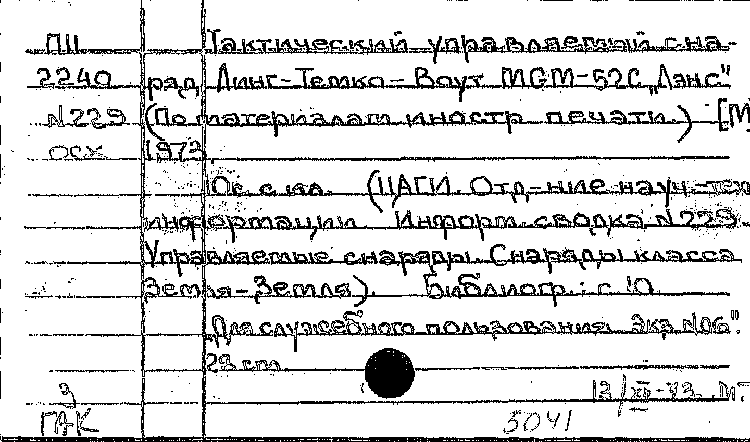 П11 Тактический управляемый сна-
2240 ряд Линг-Темко-Воут MGM-52C „Лэнс"
N229 (По материалам иностр. печати.) [М
осх 1973.
10с. с ил. (ЦАГИ. Отд-ние науч.-тех
информации. Информ. сводка N229.
Управляемые снаряды. Снаряды класса
Земля-Земля). Библиогр.: с. 10
„Для служебного пользования. Экз. N06".
28 cm.
13/XII-73. М.
ГАК
5041